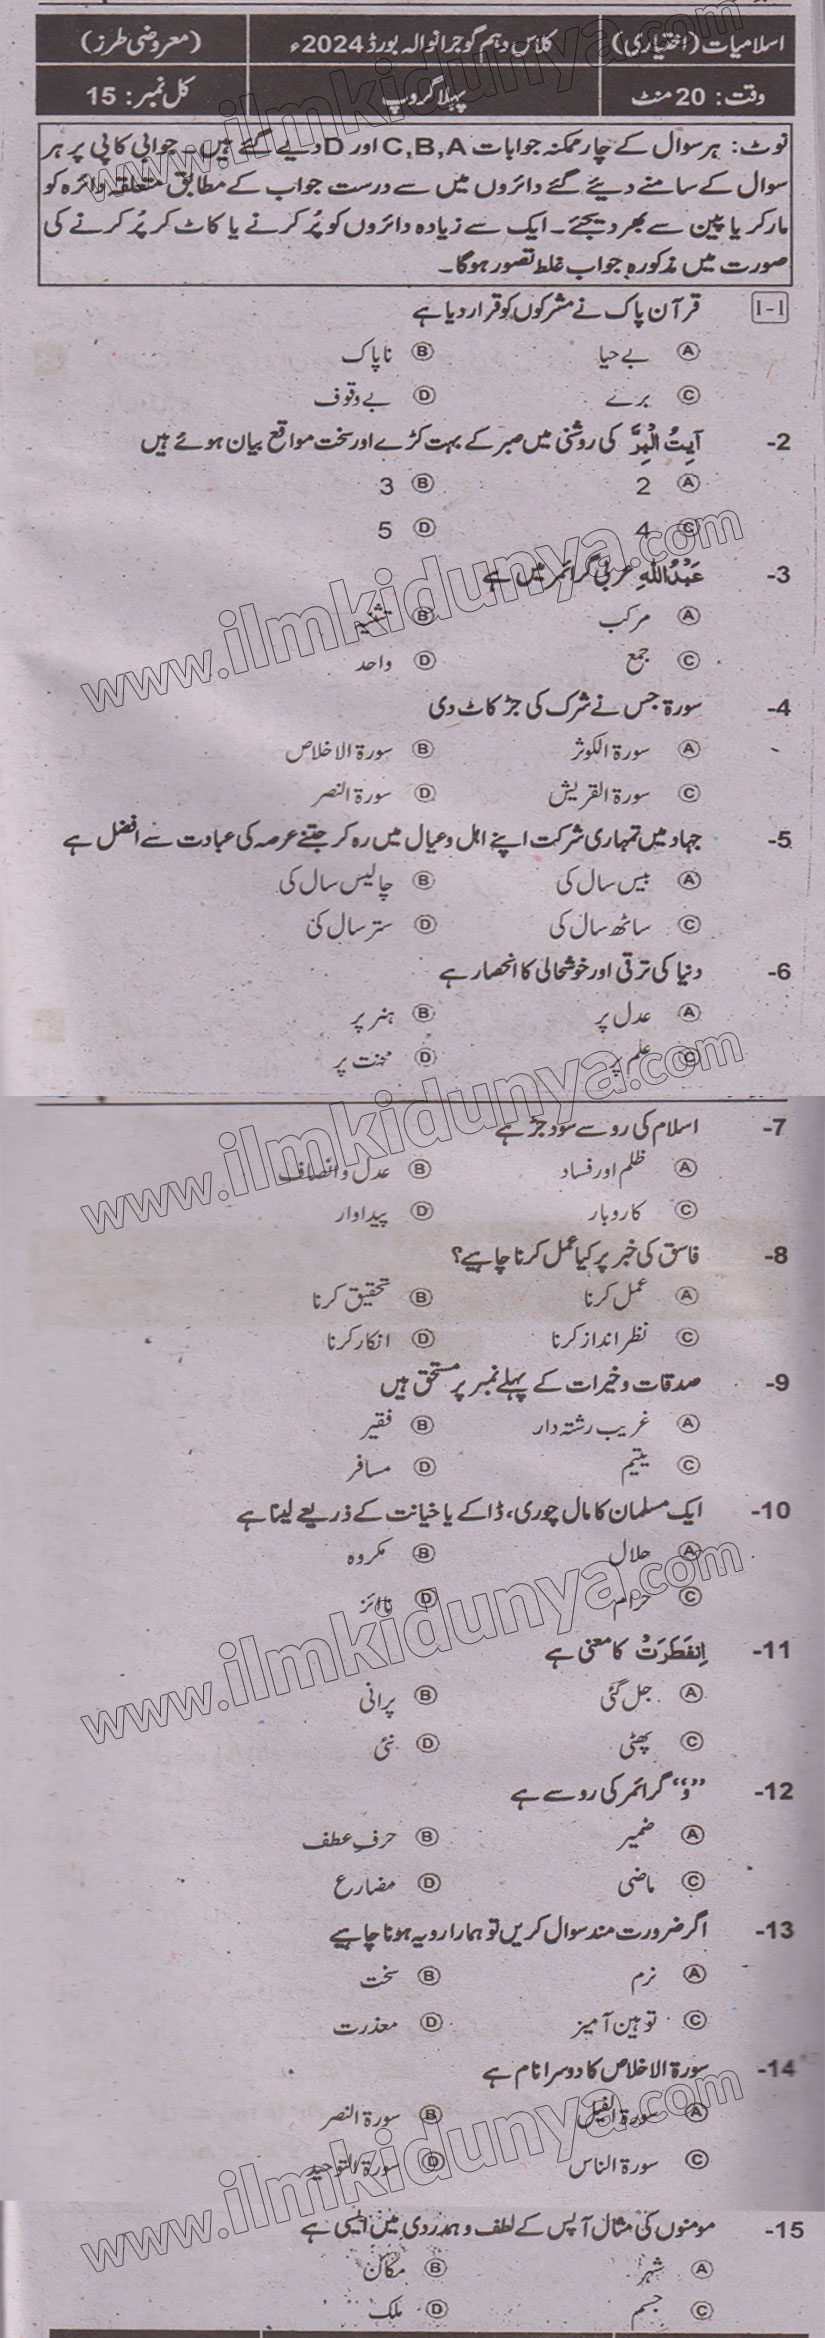 اسلامیات (اختیاری) کلاس دہم گوجرانوالہ بورڈ 2024ء (معروضی طرز)
وقت: 20 منٹ پہلا گروپ کل نمبر: 15
نوٹ: ہر سوال کے چار ممکنہ جوابات C,B,A اور D دیے گئے ہیں۔ جوابی کاپی پر ہر
سوال کے سامنے دیئے گئے دائروں میں سے درست جواب کے مطابق متعلقہ دائرہ کو
مارکر یا پین سے بھر دیجئے۔ ایک سے زیادہ دائروں کو پُر کرنے یا کاٹ کر پُر کرنے کی
صورت میں مذکورہ جواب غلط تصور ہوگا۔
1-1 قرآن پاک نے مشرکوں کو قرار دیا ہے
A بے حیا B ناپاک
C برے D بے وقوف
2- آیتُ الْبِرَّ کی روشنی میں صبر کے بہت کڑے اور سخت مواقع بیان ہوئے ہیں
A 2 B 3
C 4 D 5
3- عَبْدُاللّٰہِ عربی گرائمر میں ہے
A مرکب B تثنیہ
C جمع D واحد
4- سورۃ جس نے شرک کی جڑ کاٹ دی
A سورۃ الکوثر B سورۃ الاخلاص
C سورۃ القریش D سورۃ النصر
5- جہاد میں تمہاری شرکت اپنے اہل و عیال میں رہ کر جتنے عرصہ کی عبادت سے افضل ہے
A بیس سال کی B چالیس سال کی
C ساٹھ سال کی D ستر سال کی
6- دنیا کی ترقی اور خوشحالی کا انحصار ہے
A عدل پر B ہنر پر
C علم پر D محنت پر
7- اسلام کی رو سے سود جڑ ہے
A ظلم اور فساد B عدل و انصاف
C کاروبار D پیداوار
8- فاسق کی خبر پر کیا عمل کرنا چاہیے؟
A عمل کرنا B تحقیق کرنا
C نظر انداز کرنا D انکار کرنا
9- صدقات و خیرات کے پہلے نمبر پر مستحق ہیں
A غریب رشتہ دار B فقیر
C یتیم D مسافر
10- ایک مسلمان کا مال چوری، ڈاکے یا خیانت کے ذریعے لینا ہے
A حلال B مکروہ
C حرام D
11- اِنفَطَرَتْ کا معنی ہے
A جل گئی B پرانی
C پھٹی D نئی
12- ”وَ“ گرائمر کی رو سے ہے
A ضمیر B حرفِ عطف
C ماضی D مضارع
13- اگر ضرورت مند سوال کریں تو ہمارا رویہ ہونا چاہیے
A نرم B سخت
C توہین آمیز D معذرت
14- سورۃ الاخلاص کا دوسرا نام ہے
A سورۃ الفیل B سورۃ النصر
C سورۃ الناس D سورۃ التوحید
15- مومنوں کی مثال آپس کے لطف و ہمدردی میں ایسی ہے
A شہر B مکان
C جسم D ملک
www.ilmkidunya.com
www.ilmkidunya.com
www.ilmkidunya.com
www.ilmkidunya.com
www.ilmkidunya.com